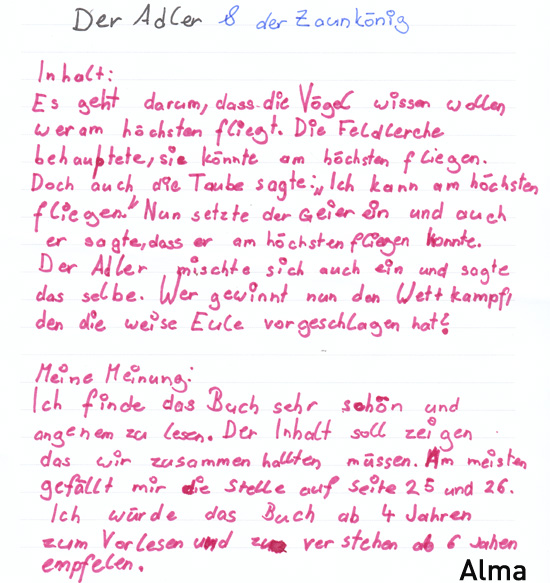 Der Adler & der Zaunkönig
Inhalt:
Es geht darum, dass die Vögel wissen wollen
wer am höchsten fliegt. Die Feldlerche
behauptete, sie könnte am höchsten fliegen.
Doch auch die Taube sagte: „Ich kann am höchsten
fliegen." Nun setzte der Geier ein und auch
er sagte, dass er am höchsten fliegen konnte.
Der Adler mischte sich auch ein und sagte
das selbe. Wer gewinnt nun den Wettkampf,
den die weise Eule vorgeschlagen hat?
Meine Meinung:
Ich finde das Buch sehr schön und
angenem zu lesen. Der Inhalt soll zeigen
das wir zusammen hallten müssen. Am meisten
gefällt mir die Stelle auf Seite 25 und 26.
Ich würde das Buch ab 4 Jahren
zum Vorlesen und zum verstehen ab 6 Jahen
empfelen.
Alma